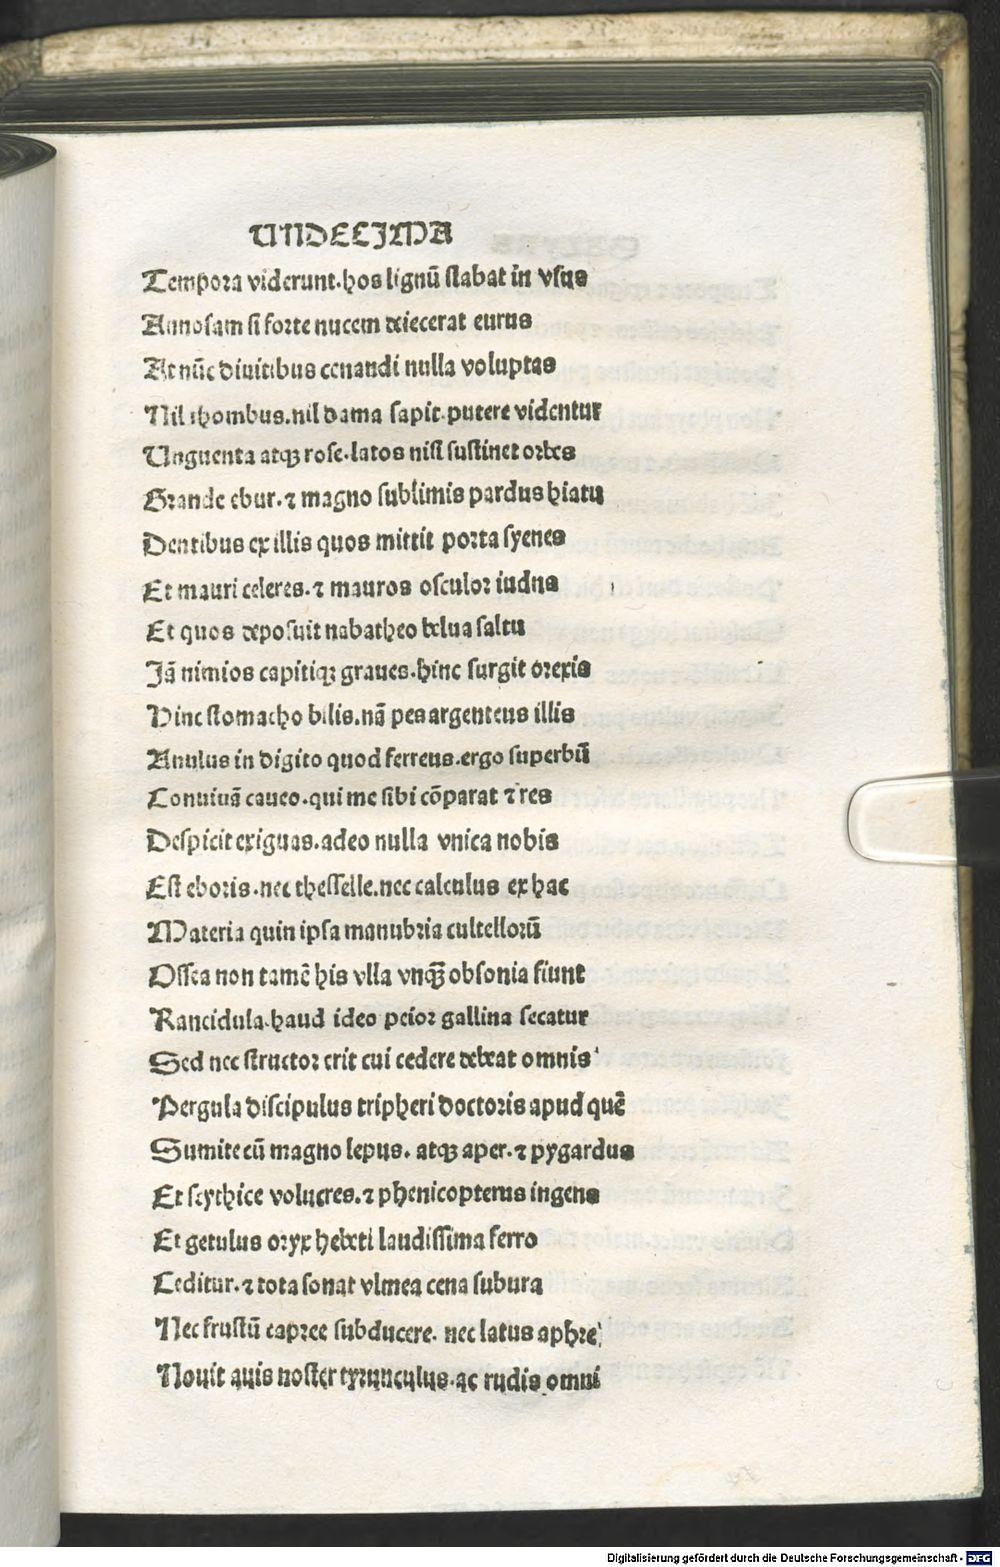 UNDECIMA
Tempora viderunt. hos lignū stabat in vsus
Annosam si forte nucem deiecerat eurus
At nūc diuitibus cenandi nulla voluptas
Nil rhombus. nil dama sapit. putere videntur
Unguenta atqꝫ rose. latos nisi sustinet orbes
Grande ebur. ⁊ magno sublimis pardus hiatu
Dentibus ex illis quos mittit porta syenes
Et mauri celeres. ⁊ mauros osculor iudus
Et quos deposuit nabatheo belua saltu
Jā nimios capitiqꝫ graues. hinc surgit orexis
Hinc stomacho bilis. nā pes argenteus illis
Anulus in digito quod ferreus. ergo superbū
Conuiuā caueo. qui me sibi cōparat ⁊ res
Despicit exiguas. adeo nulla vnica nobis
Est eboris. nec thesselle. nec calculus ex hac
Materia quin ipsa manubria cultellorū
Ossea non tamē his vlla vnqꝫ̄ obsonia fiunt
Rancidula. haud ideo peior gallina secatur
Sed nec structor erit cui cedere debeat omnis
Pergula discipulus tripheri doctoris apud quē
Sumite cū magno lepus. atqꝫ aper. ⁊ pygardus
Et scythice volucres. ⁊ phenicopterus ingens
Et getulus oryx hebeti laudissima ferro
Ceditur. ⁊ tota sonat vlmea cena subura
Nec frustū capree subducere. nec latus aphre
Nouit auis noster tyrunculus. ac rudis omni
Digitalisierung gefördert durch die Deutsche Forschungsgemeinschaft - DFG